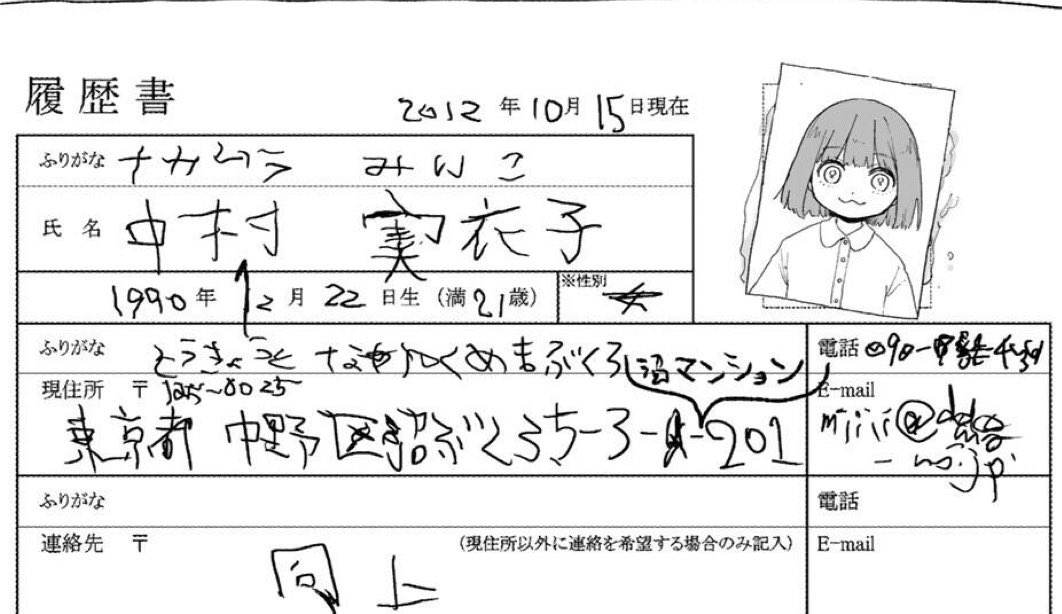 履歴書
2012年10月15日現在
ふりがな ナカムラ みいこ
氏名 中村 実衣子
1990年12月22日生(満21歳)
※性別 女
ふりがな とうきょうと なかのくぬまぶくろ
沼マンション
電話 090-
現住所 〒165-0025
東京都 中野区沼ぶくろ5-3-201
E-mail
ふりがな
電話
連絡先 〒 (現住所以外に連絡を希望する場合のみ記入)
E-mail
同上